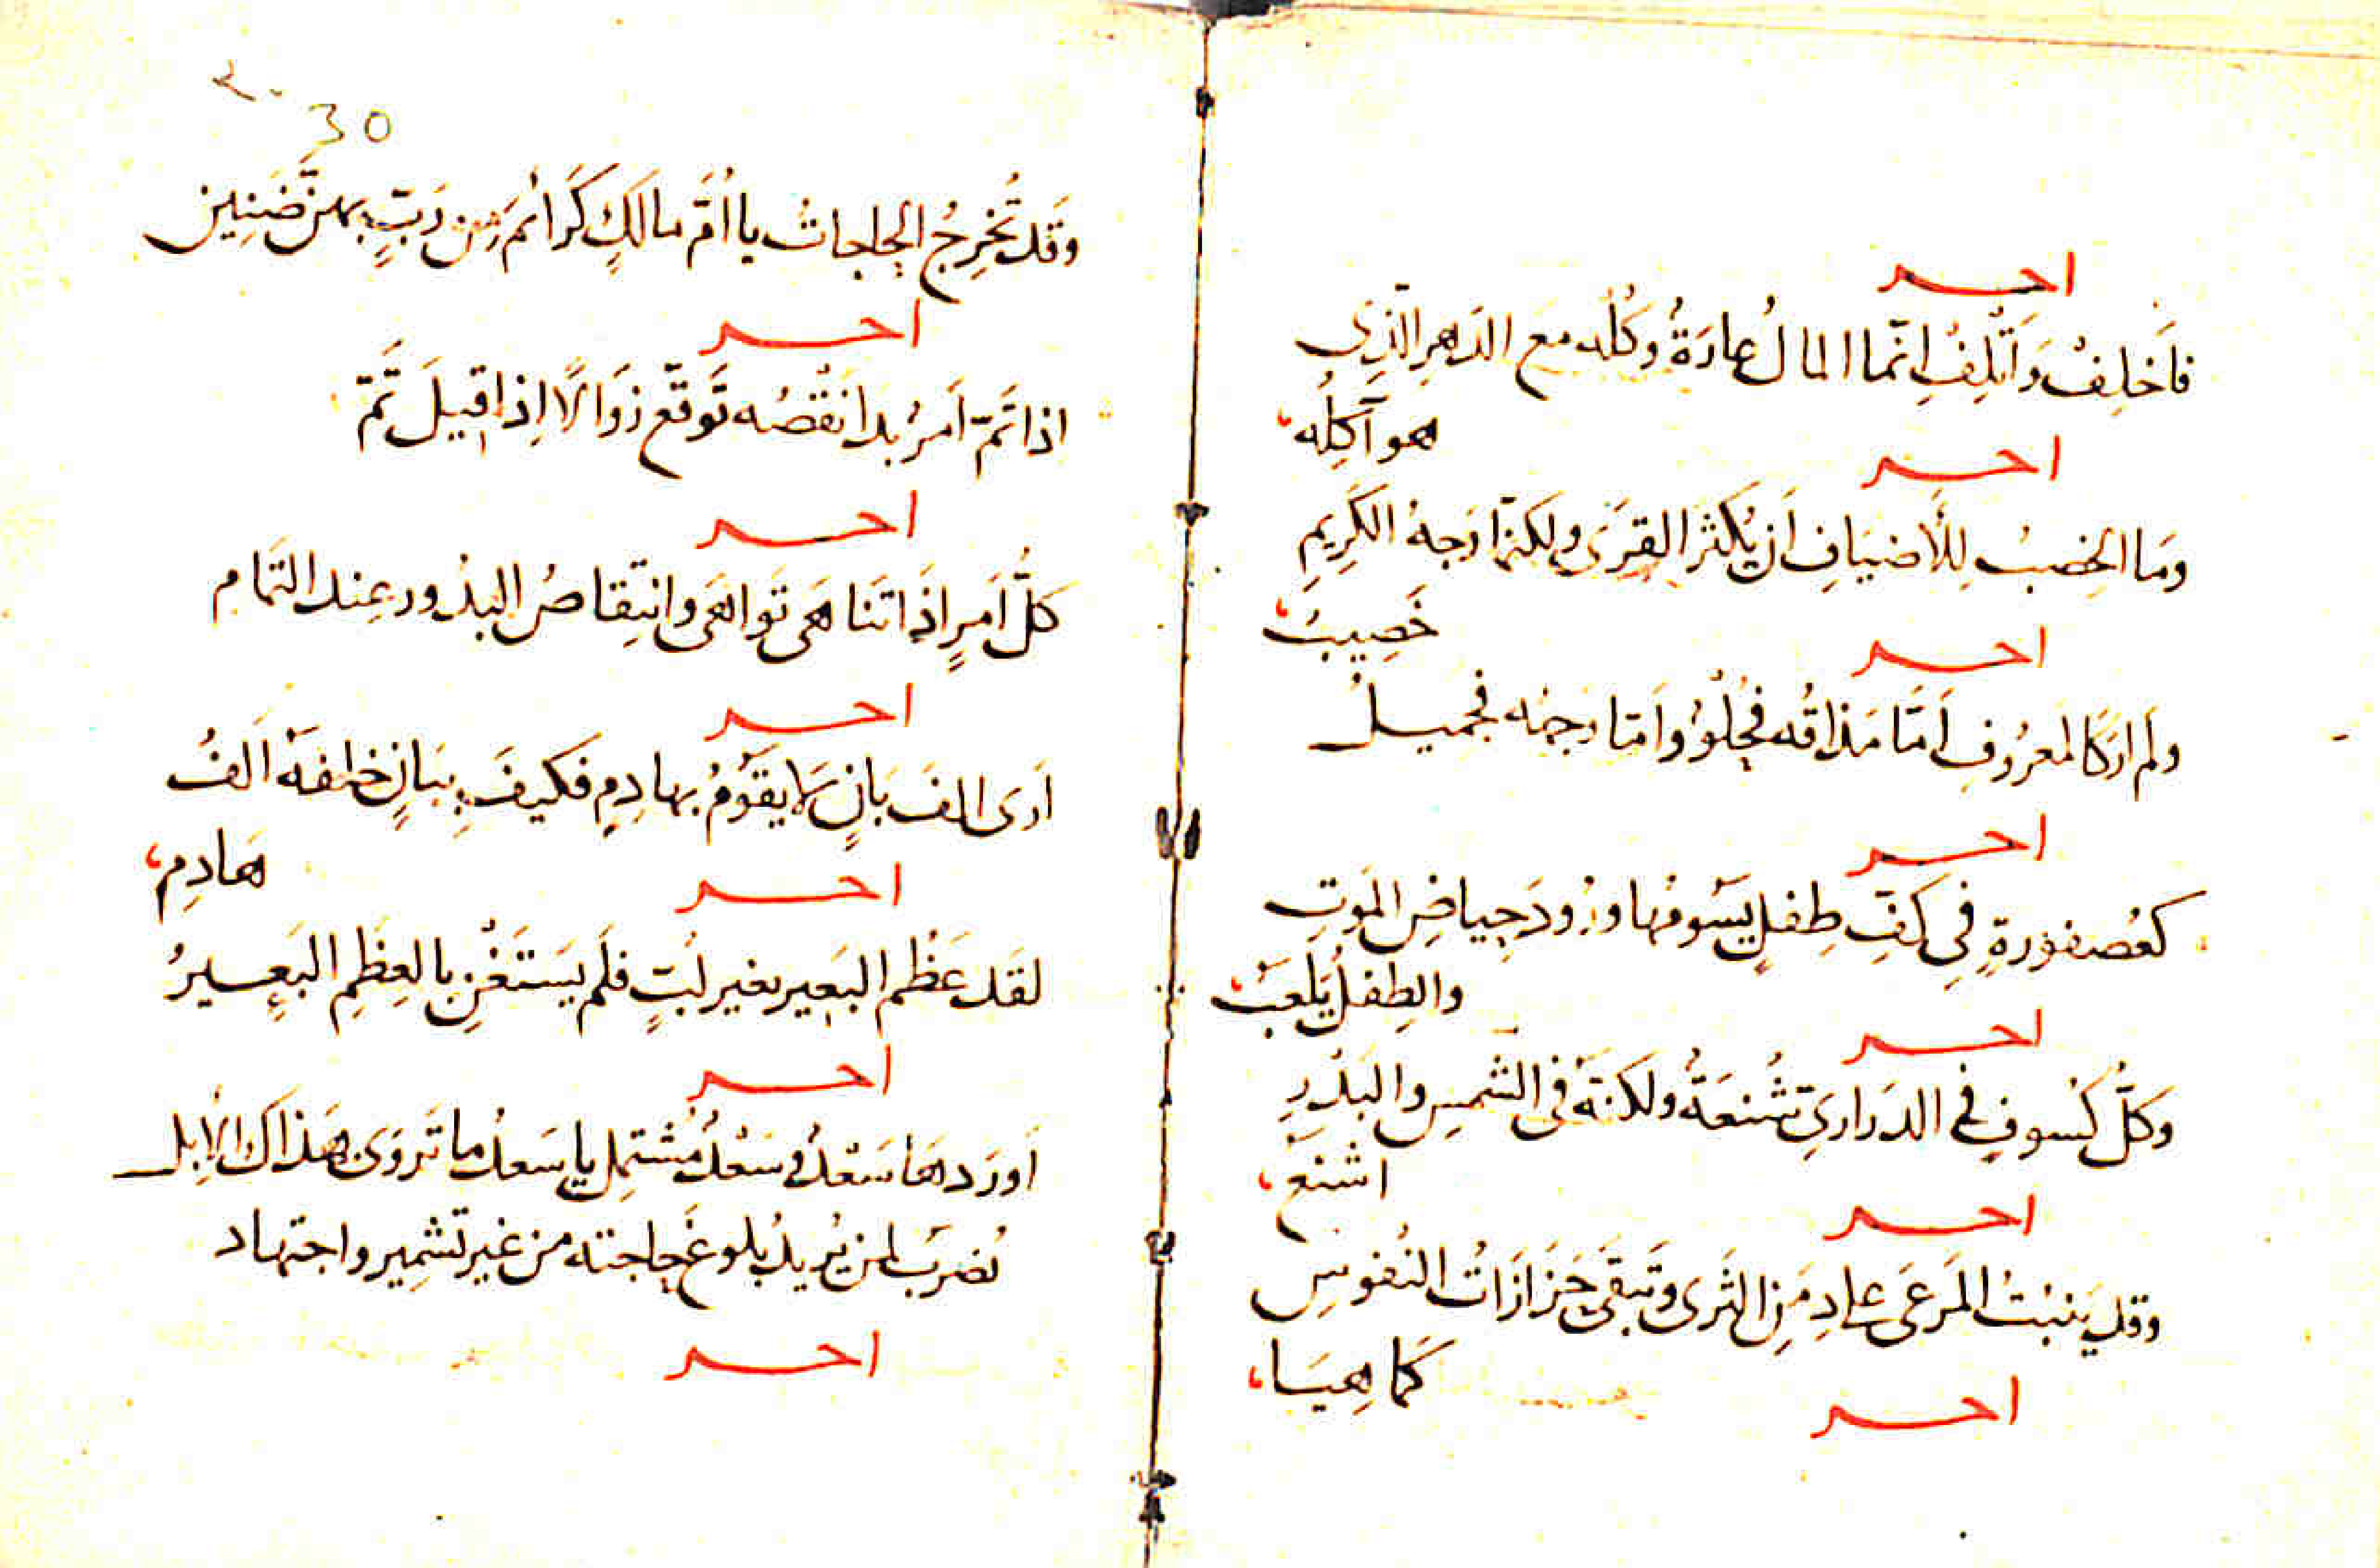 احــر
فَاَخلِفْ وَاَتْلِفْ اِنّما المالُ عارَةٌ وكُلُه مع الدَهرِ الّذِى
هو آكِلُه،
احــر
وَما الخِصبُ لِلأَضيَافِ اَن يُكثَرَ القِرَى ولكنّما وَجهُ الكَرِيمِ
خَصِيبُ،
احــر
ولم ارَ كالمَعرُوفِ اَمّا مَذاقُه فحُلْوٌ واَمّا وَجهُه فجميلُ
احــر
كعُصفورةٍ فِى كَفِّ طِفلٍ يَسُومُها وُرُودَ حِياضِ المَوتِ
والطِفلُ يَلعَبُ،
احــر
وكلُّ كُسوفٍ فى الدَرارِيّ شُنعَةٌ ولكنّهُ فى الشمسِ والبَدْرِ
اشنعُ،
احــر
وقد يَنبُتُ المَرعَى على دِمَنِ الثَرى وتَبقَى حَزَازَاتُ النُفوسِ
كما هِيَا،
احــر
٢٠
30
وَقَد تُخرِجُ الحاجاتُ يا اُمَّ مالَكٍ كَرَائمَ مِن رَبٍّ بهنّ ضَنِينِ
احــر
اذا تَمّ اَمرٌ بدا نَقْصُه تَوقّع زَوَالًا اِذا قِيلَ تَمّ
احــر
كلُّ اَمرٍ اِذَا تَنَاهَى تَوَاهَى وانتِقاصُ البدُور عِند التَمامِ
احــر
اَرى الفَ بَانٍ لَا يقَوْمُ بهادِمٍ فكيفَ بِبَانٍ خلفَهُ اَلفُ
هَادِمِ،
احــر
لقَد عَظُم البَعِير بغير لُبّ فلَم يَستَغْنِ بالعِظَمِ البَعِيرُ
احــر
اَورَدهَا سَعْدٌ وسَعْدٌ مُشتمِل يا سَعدُ ما تَروَى بهَذاكَ الاِبل
تُضرَبُ لمن يُريدُ بُلوغَ حاجته من غير تشمِير واجتهاد
احــر